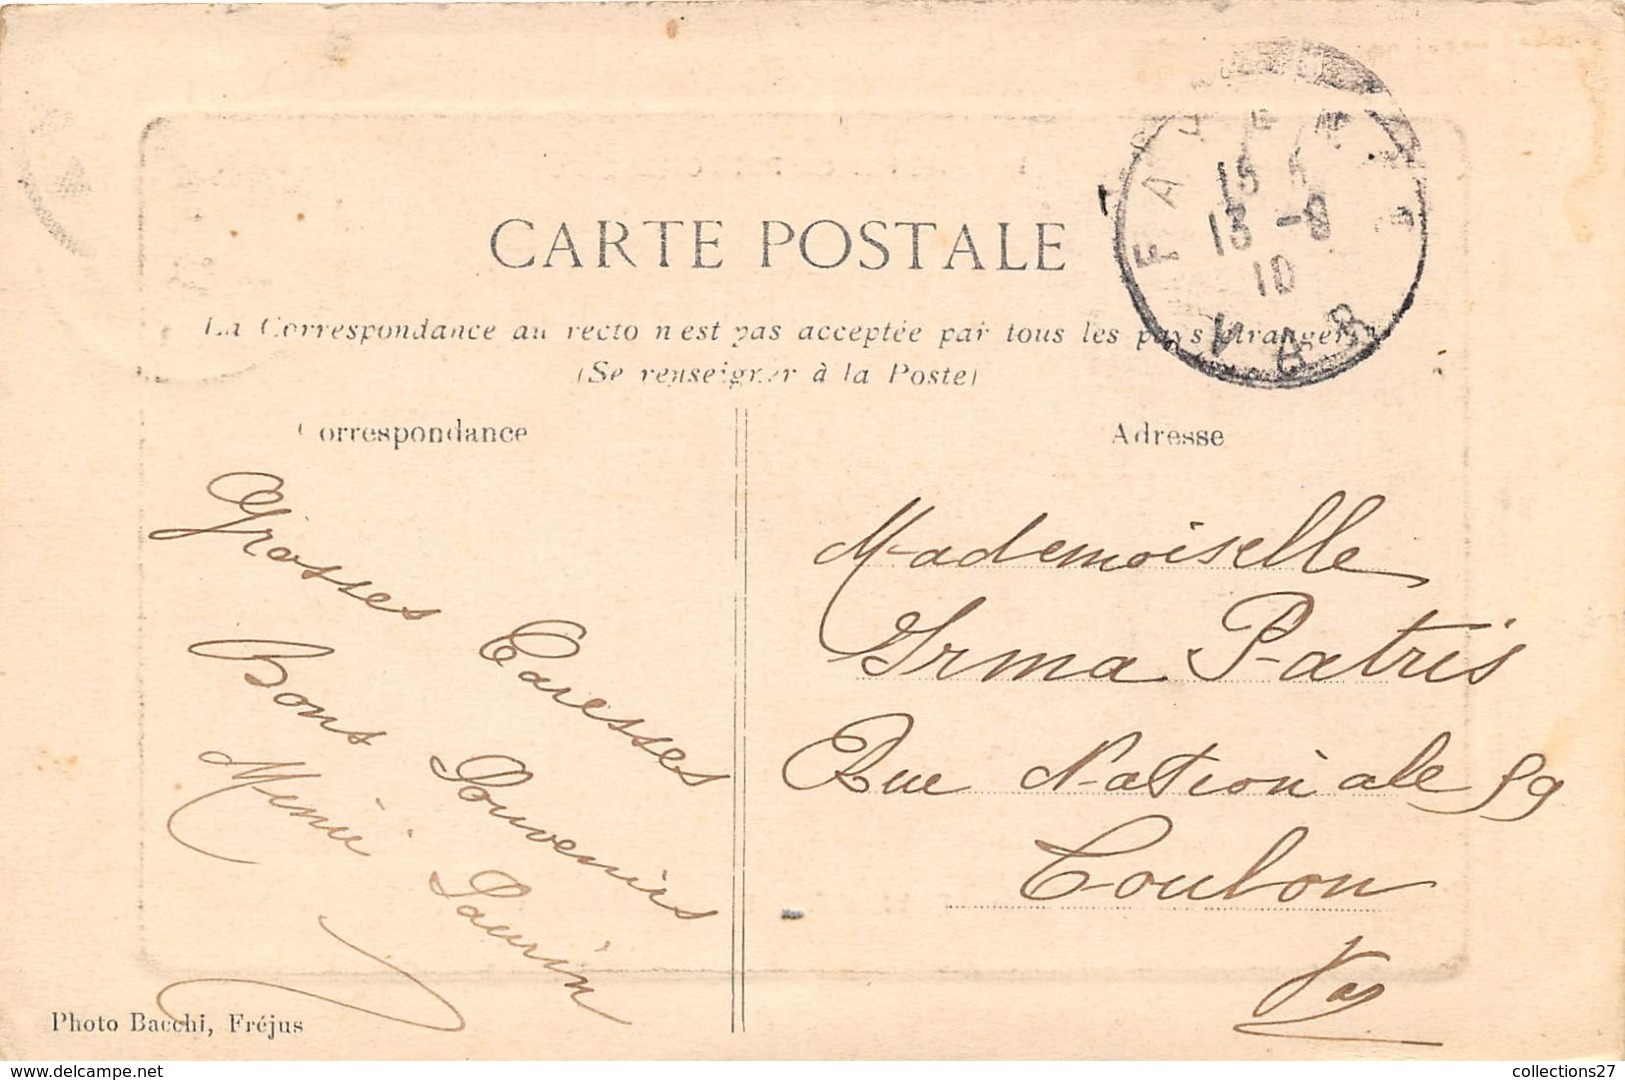 15 5
13 -8
10
VAR
CARTE POSTALE
La Correspondance au recto n'est pas acceptée par tous les pays étrangers
(Se renseigner à la Poste)
Correspondance
Adresse
Grosses Caresses
Bons Souvenirs
Mimi Saurin
Mademoiselle
Irma Patris
Rue Nationale 59
Toulon
Var
Photo Bacchi, Fréjus
delcampe.net
collections27